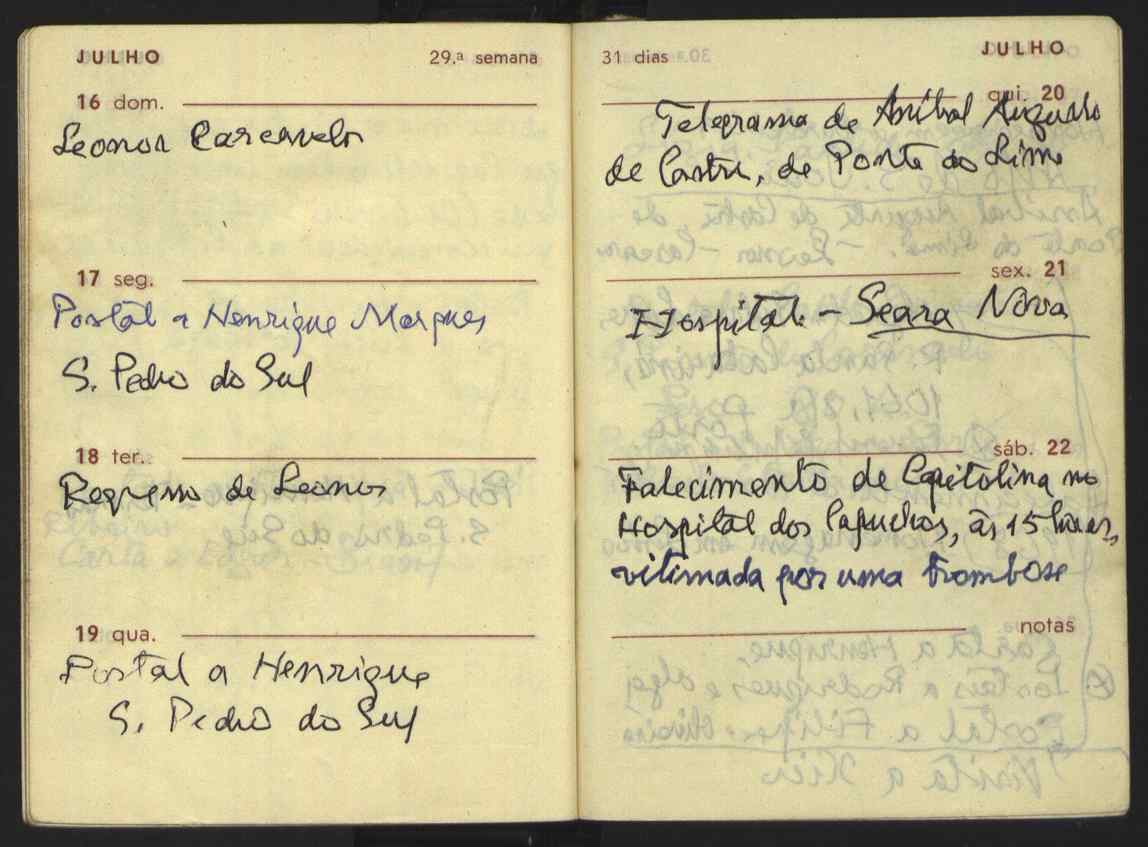 JULHO
29.ª semana
16 dom.
Leonor Carcavelos
17 seg.
Postal a Henrique Marques
S. Pedro do Sul
18 ter.
Regresso de Leonor
19 qua.
Postal a Henrique
S. Pedro do Sul
31 dias
JULHO
qui. 20
Telegrama de Aníbal Augusto
de Castro, de Ponte do Lima
sex. 21
Hospital – Seara Nova
sáb. 22
Falecimento de Capitolina no
Hospital dos Capuchos, às 15 horas,
vitimada por uma trombose
notas